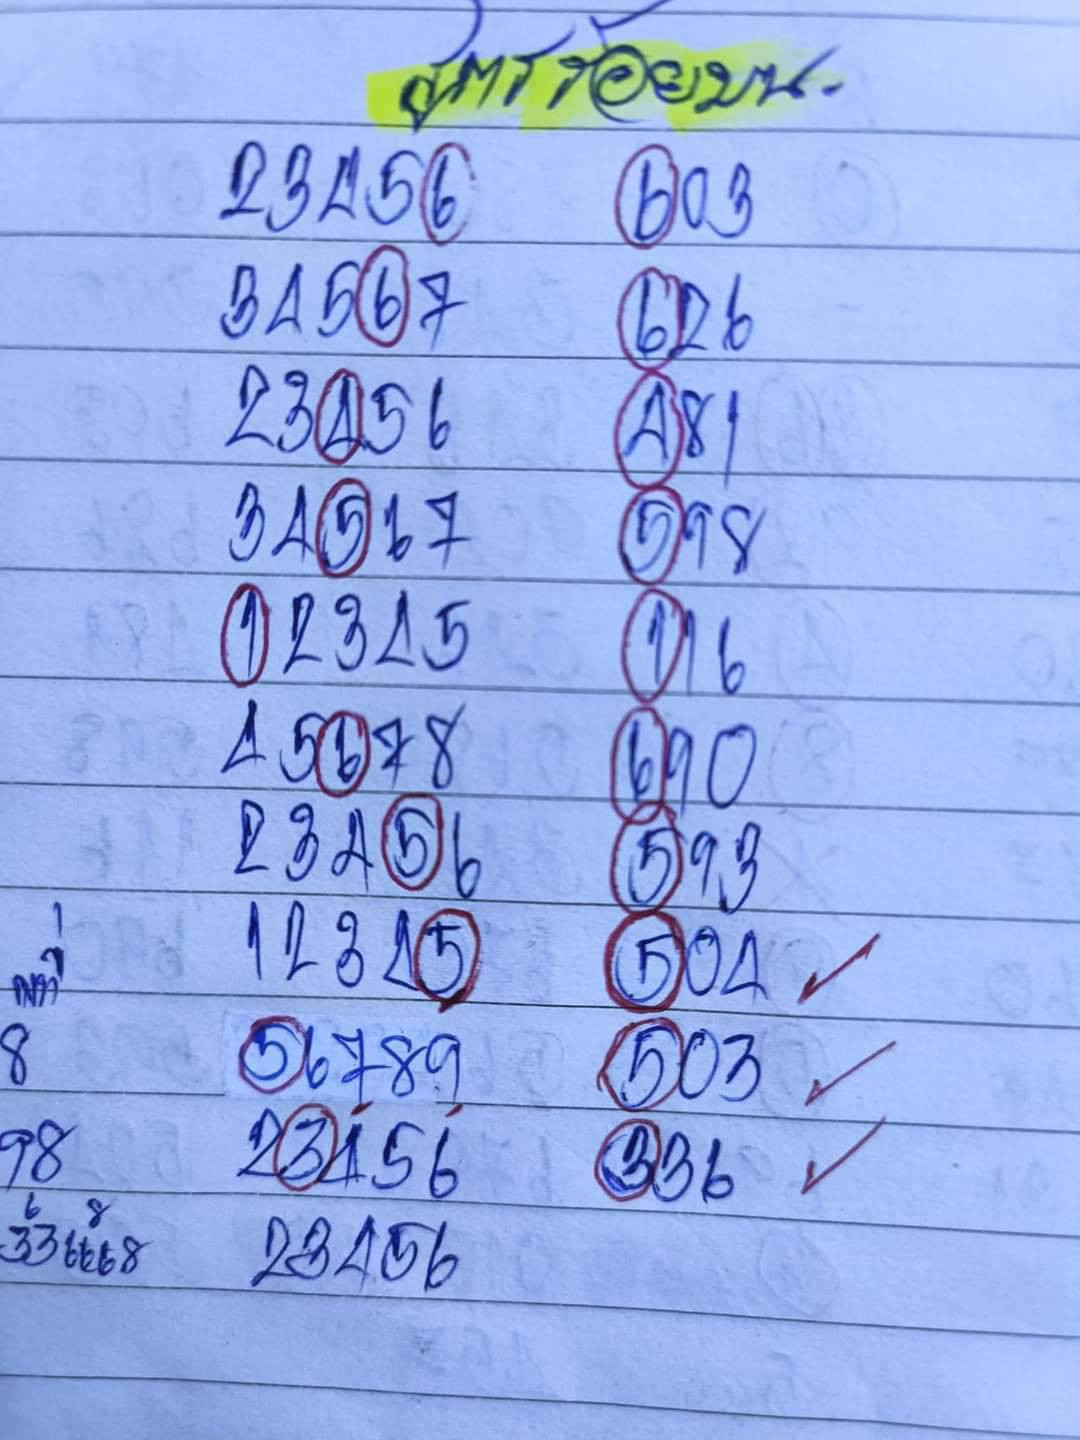 สูตรร้อยบน.
23456 603
34567 626
23456 481
34567 598
12345 116
45678 690
23456 593
12345 504
8 56789 503
98 23456 336
6 8
3366668 23456